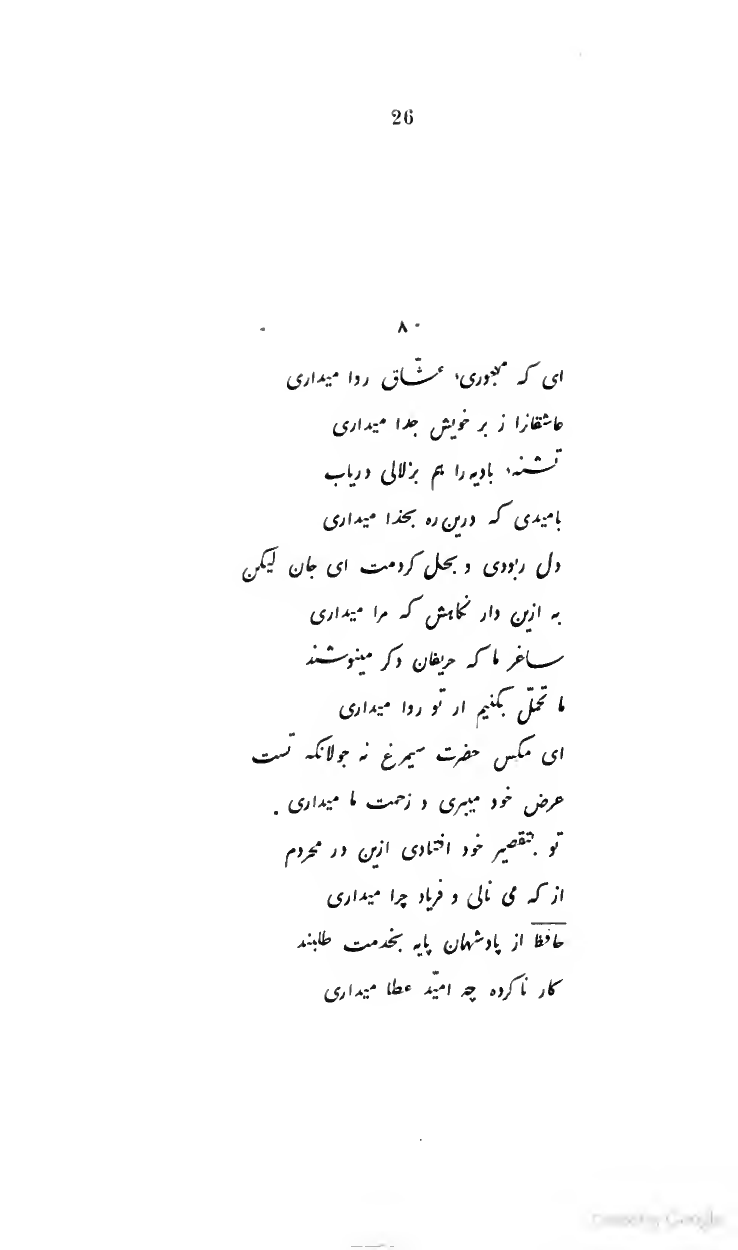 26
٨٠
ای که مهجوریٔ عشّاق روا میداری
عاشقانرا ز بر خویش جدا میداری
تشنهٔ بادیه را هم بزلالی دریاب
بامیدی که درین ره بخدا میداری
دل ربودی و بحل کردمت ای جان لیکن
به ازین دار نگاهش که مرا میداری
ساغر ما که حریفان دکر مینوشند
ما تحمّل بکنیم ار تو روا میداری
ای مکس حضرت سیمرغ نه جولانکه تست
عرض خود میبری و زحمت ما میداری .
تو بتقصیر خود افتادی ازین در محروم
از که می نالی و فریاد چرا میداری
حافظ از پادشهان پایه بخدمت طلبند
کار ناکرده چه امیّد عطا میداری